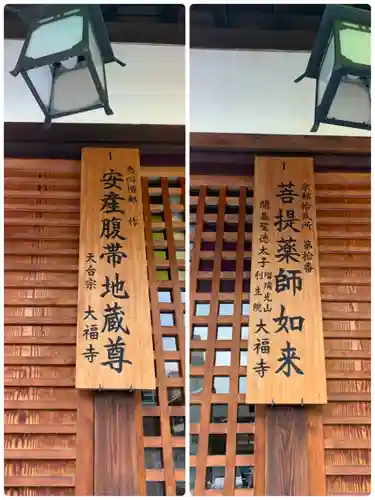 恵心僧都 作
安産腹帯地蔵尊
天台宗 大福寺
第拾番
菩提薬師如来
開基聖徳太子
瑠璃光山
利生院
大福寺